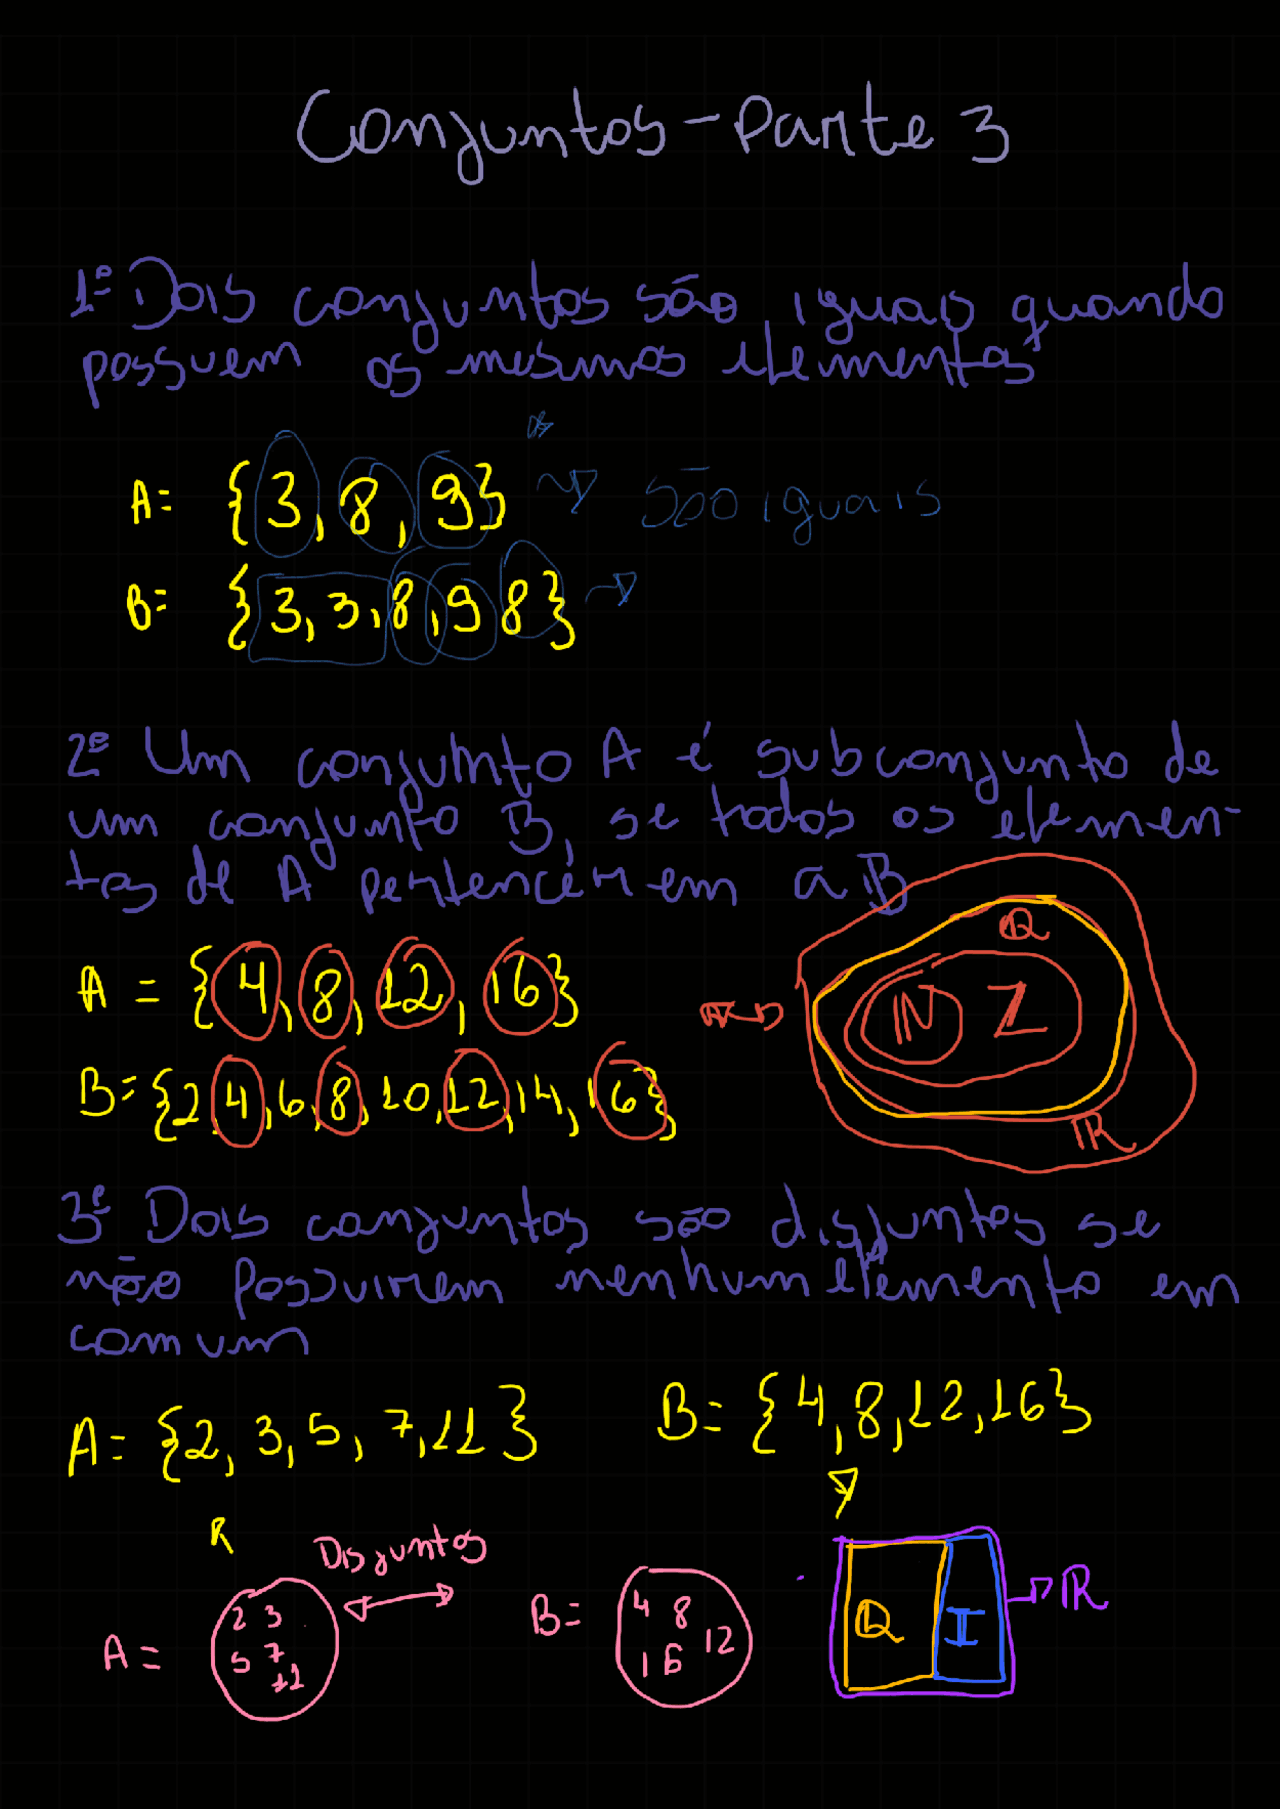 Conjuntos - Parte 3
1º Dois conjuntos são iguais quando
possuem os mesmos elementos
A = {3, 8, 9} são iguais
B = {3, 3, 8, 9 8}
2º Um conjunto A é subconjunto de
um conjunto B, se todos os elemen-
tos de A pertencerem a B
A = {4, 8, 12, 16}
B = {2 4, 6, 8, 10, 12, 14, 16}
Q
N Z
R
3º Dois conjuntos são disjuntos se
não possuirem nenhum elemento em
comum
A = {2, 3, 5, 7, 11} B = {4, 8, 12, 16}
R
Disjuntos
A = 2 3 5 7 11
B = 4 8 12 16
Q I R